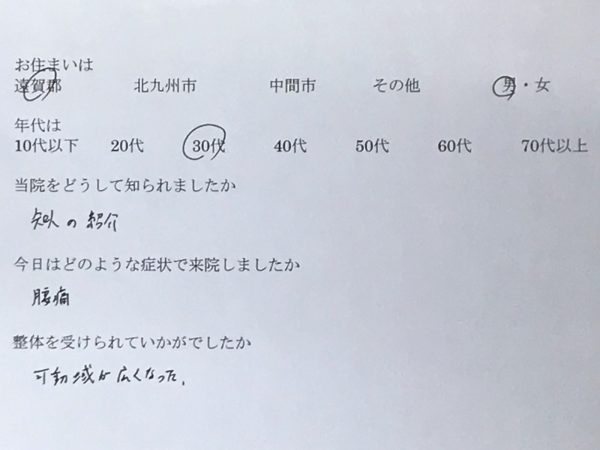 お住まいは
遠賀郡 北九州市 中間市 その他 男・女
年代は
10代以下 20代 30代 40代 50代 60代 70代以上
当院をどうして知られましたか
知人の紹介
今日はどのような症状で来院しましたか
腰痛
整体を受けられていかがでしたか
可動域が広くなった。